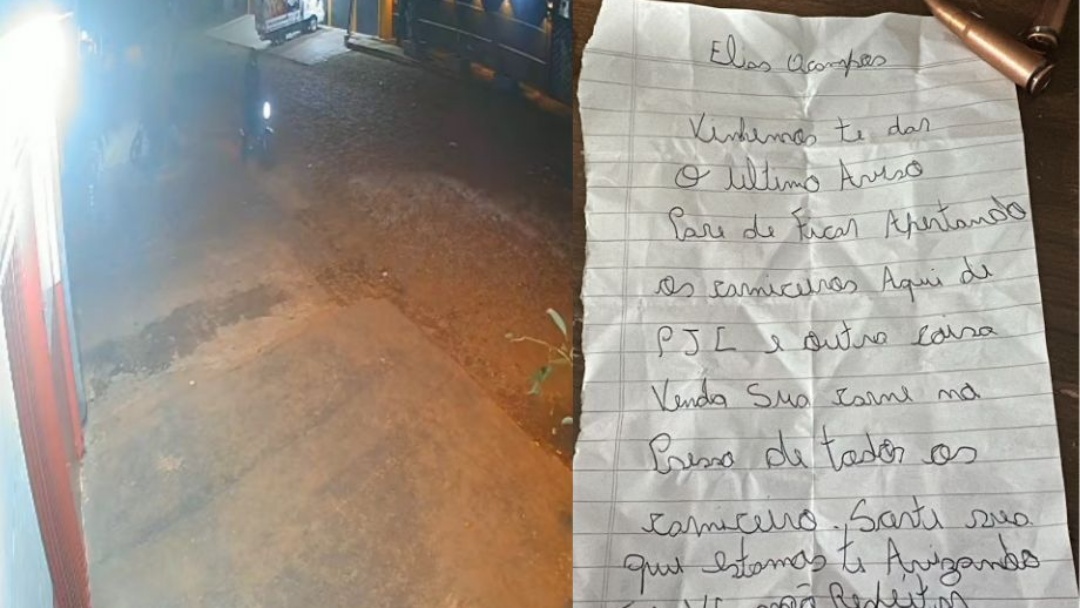 Elias acampos
Vinhemos te dar
O ultimo Aviso
Pare de Ficar Apertando
os carniceiros Aqui de
PJC e outra coisa
Venda Sua carne na
Presso de todos os
carniceiro. Sorte sua
que estamos te Avizando